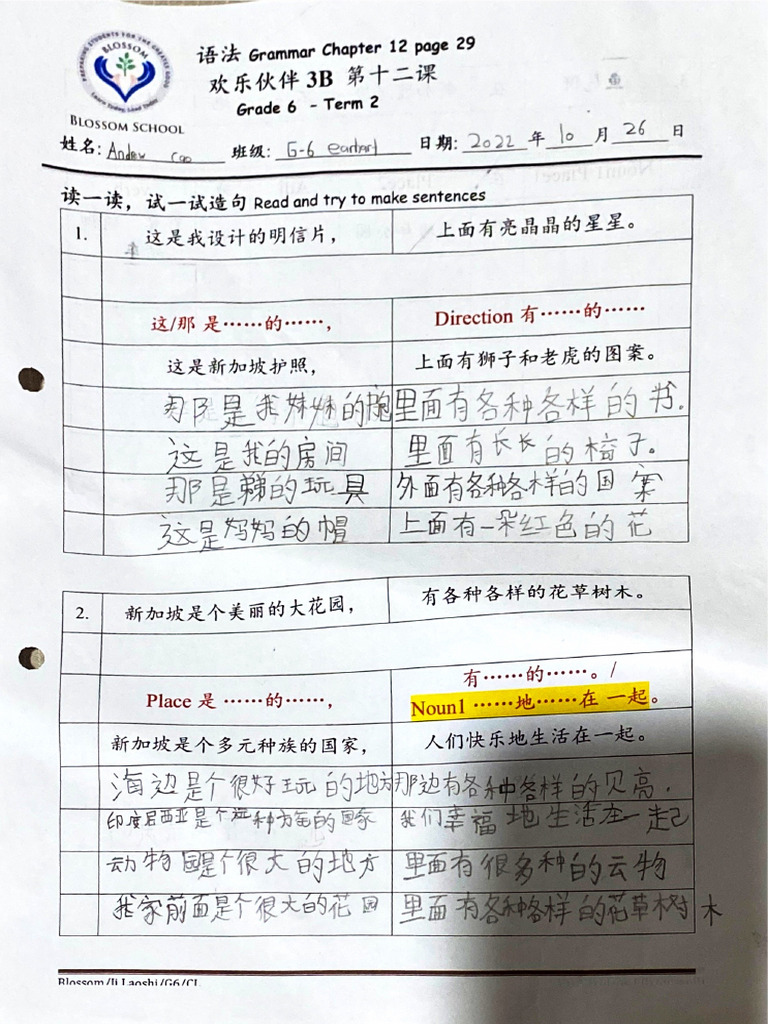 PREPARING STUDENTS FOR THE GREATER GOOD
BLOSSOM
BLOSSOM SCHOOL
语法 Grammar Chapter 12 page 29
欢乐伙伴 3B 第十二课
Grade 6 - Term 2
姓名: Andrew cao 班级: G-6 earhart 日期: 2022 年 10 月 26 日
读一读，试一试造句 Read and try to make sentences
1. 这是我设计的明信片， 上面有亮晶晶的星星。
这/那 是……的……， Direction 有……的……
这是新加坡护照， 上面有狮子和老虎的图案。
那是我妹妹的 里面有各种各样的书.
这是我的房间 里面有长长的椅子。
那是 的玩具 外面有各种各样的国案
这是妈妈的帽 上面有一朵红色的花
2. 新加坡是个美丽的大花园， 有各种各样的花草树木。
Place 是 ……的……， 有……的……。/
Noun1 ……地……在 一起。
新加坡是个多元种族的国家， 人们快乐地生活在一起。
海边是个很好玩的地方 那边有各种各样的贝亮.
印度尼西亚是个 种 的国家 我们幸福地生活在一起
动物园是个很大的地方 里面有很多种的云物
我家前面是个很大的花园 里面有各种各样的花草树木
Blossom/Ji Laoshi/G6/CL